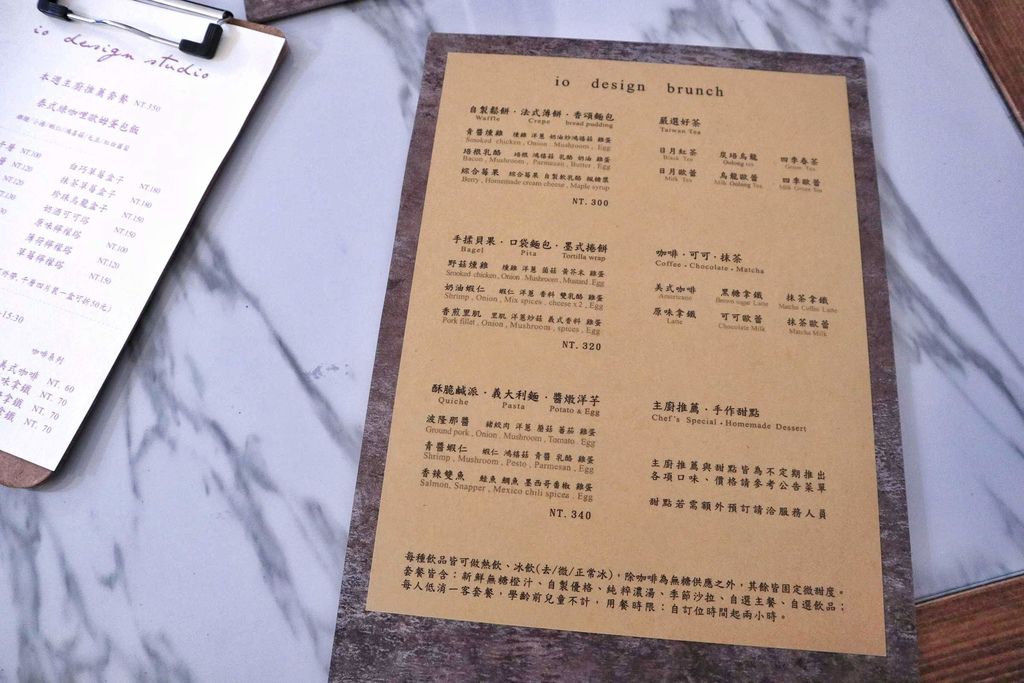 io design studio
本週主廚推薦套餐 NT.350
泰式綠咖哩歐姆蛋包飯
NT.100
NT.120
白巧草莓盒子 NT.180
抹茶草莓盒子 NT.180
珍珠烏龍盒子 NT.150
奶酒可可塔 NT.150
原味檸檬塔 NT.100
薄荷檸檬塔 NT.120
草莓檸檬塔 NT.150
-15:30
咖啡系列
美式咖啡 NT. 60
味拿鐵 NT. 70
拿鐵 NT. 70
拿鐵 NT. 70
io design brunch
自製鬆餅・法式薄餅・香頌麵包
Waffle Crepe bread pudding
青醬燻雞 燻雞 洋蔥 奶油炒鴻禧菇 雞蛋
Smoked chicken , Onion , Mushroom , Egg
培根乳酪 培根 鴻禧菇 乳酪 奶油 雞蛋
Bacon , Mushroom , Parmesan , Butter , Egg
綜合莓果 綜合莓果 自製軟乳酪 楓糖漿
Berry , Homemade cream cheese , Maple syrup
NT. 300
手揉貝果・口袋麵包・墨式捲餅
Bagel Pita Tortilla wrap
野菇燻雞 燻雞 洋蔥 菌菇 黃芥末 雞蛋
Smoked chicken , Onion , Mushroom , Mustard , Egg
奶油蝦仁 蝦仁 洋蔥 香料 雙乳酪 雞蛋
Shrimp , Onion , Mix spices , cheese x 2 , Egg
香煎里肌 里肌 洋蔥炒菇 義式香料 雞蛋
Pork fillet , Onion , Mushroom , spices , Egg
NT. 320
酥脆鹹派・義大利麵・醬燉洋芋
Quiche Pasta Potato & Egg
波隆那醬 豬絞肉 洋蔥 蘑菇 蕃茄 雞蛋
Ground pork , Onion , Mushroom , Tomato , Egg
青醬蝦仁 蝦仁 鴻禧菇 青醬 乳酪 雞蛋
Shrimp , Mushroom , Pesto , Parmesan , Egg
香辣雙魚 鮭魚 鯛魚 墨西哥番椒 雞蛋
Salmon, Snapper , Mexico chili spices , Egg
NT. 340
嚴選好茶
Taiwan Tea
日月紅茶 炭焙烏龍 四季春茶
Black Tea Oolong tea Green Tea
日月歐蕾 烏龍歐蕾 四季歐蕾
Milk Tea Milk Oolong Tea Milk Green Tea
咖啡・可可・抹茶
Coffee・Chocolate・Matcha
美式咖啡 黑糖拿鐵 抹茶拿鐵
Americano Brown sugar Latte Matcha Coffee Latte
原味拿鐵 可可歐蕾 抹茶歐蕾
Latte Chocolate Milk Matcha Milk
主廚推薦・手作甜點
Chef's Special・Homemade Dessert
主廚推薦與甜點皆為不定期推出
各項口味、價格請參考公告菜單
甜點若需額外預訂請洽服務人員
每種飲品皆可做熱飲、冰飲(去/微/正常冰)，除咖啡為無糖供應之外，其餘皆固定微甜度。
套餐皆含：新鮮無糖橙汁、自製優格、純粹濃湯、季節沙拉、自選主餐、自選飲品；
每人低消一客套餐，學齡前兒童不計，用餐時限：自訂位時間起兩小時。